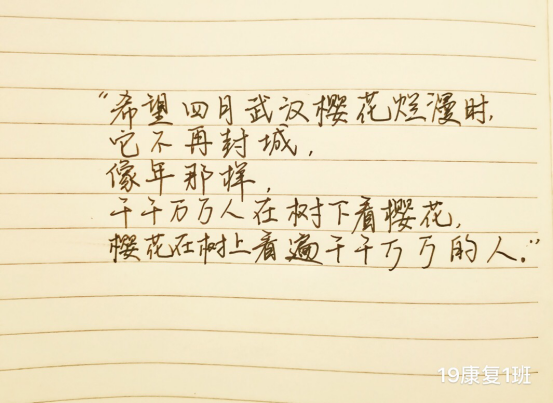 “希望四月武汉樱花烂漫时,
它不再封城,
像年那样,
千千万万人在树下看樱花,
樱花在树上看遍千千万万的人.”
19康复1班